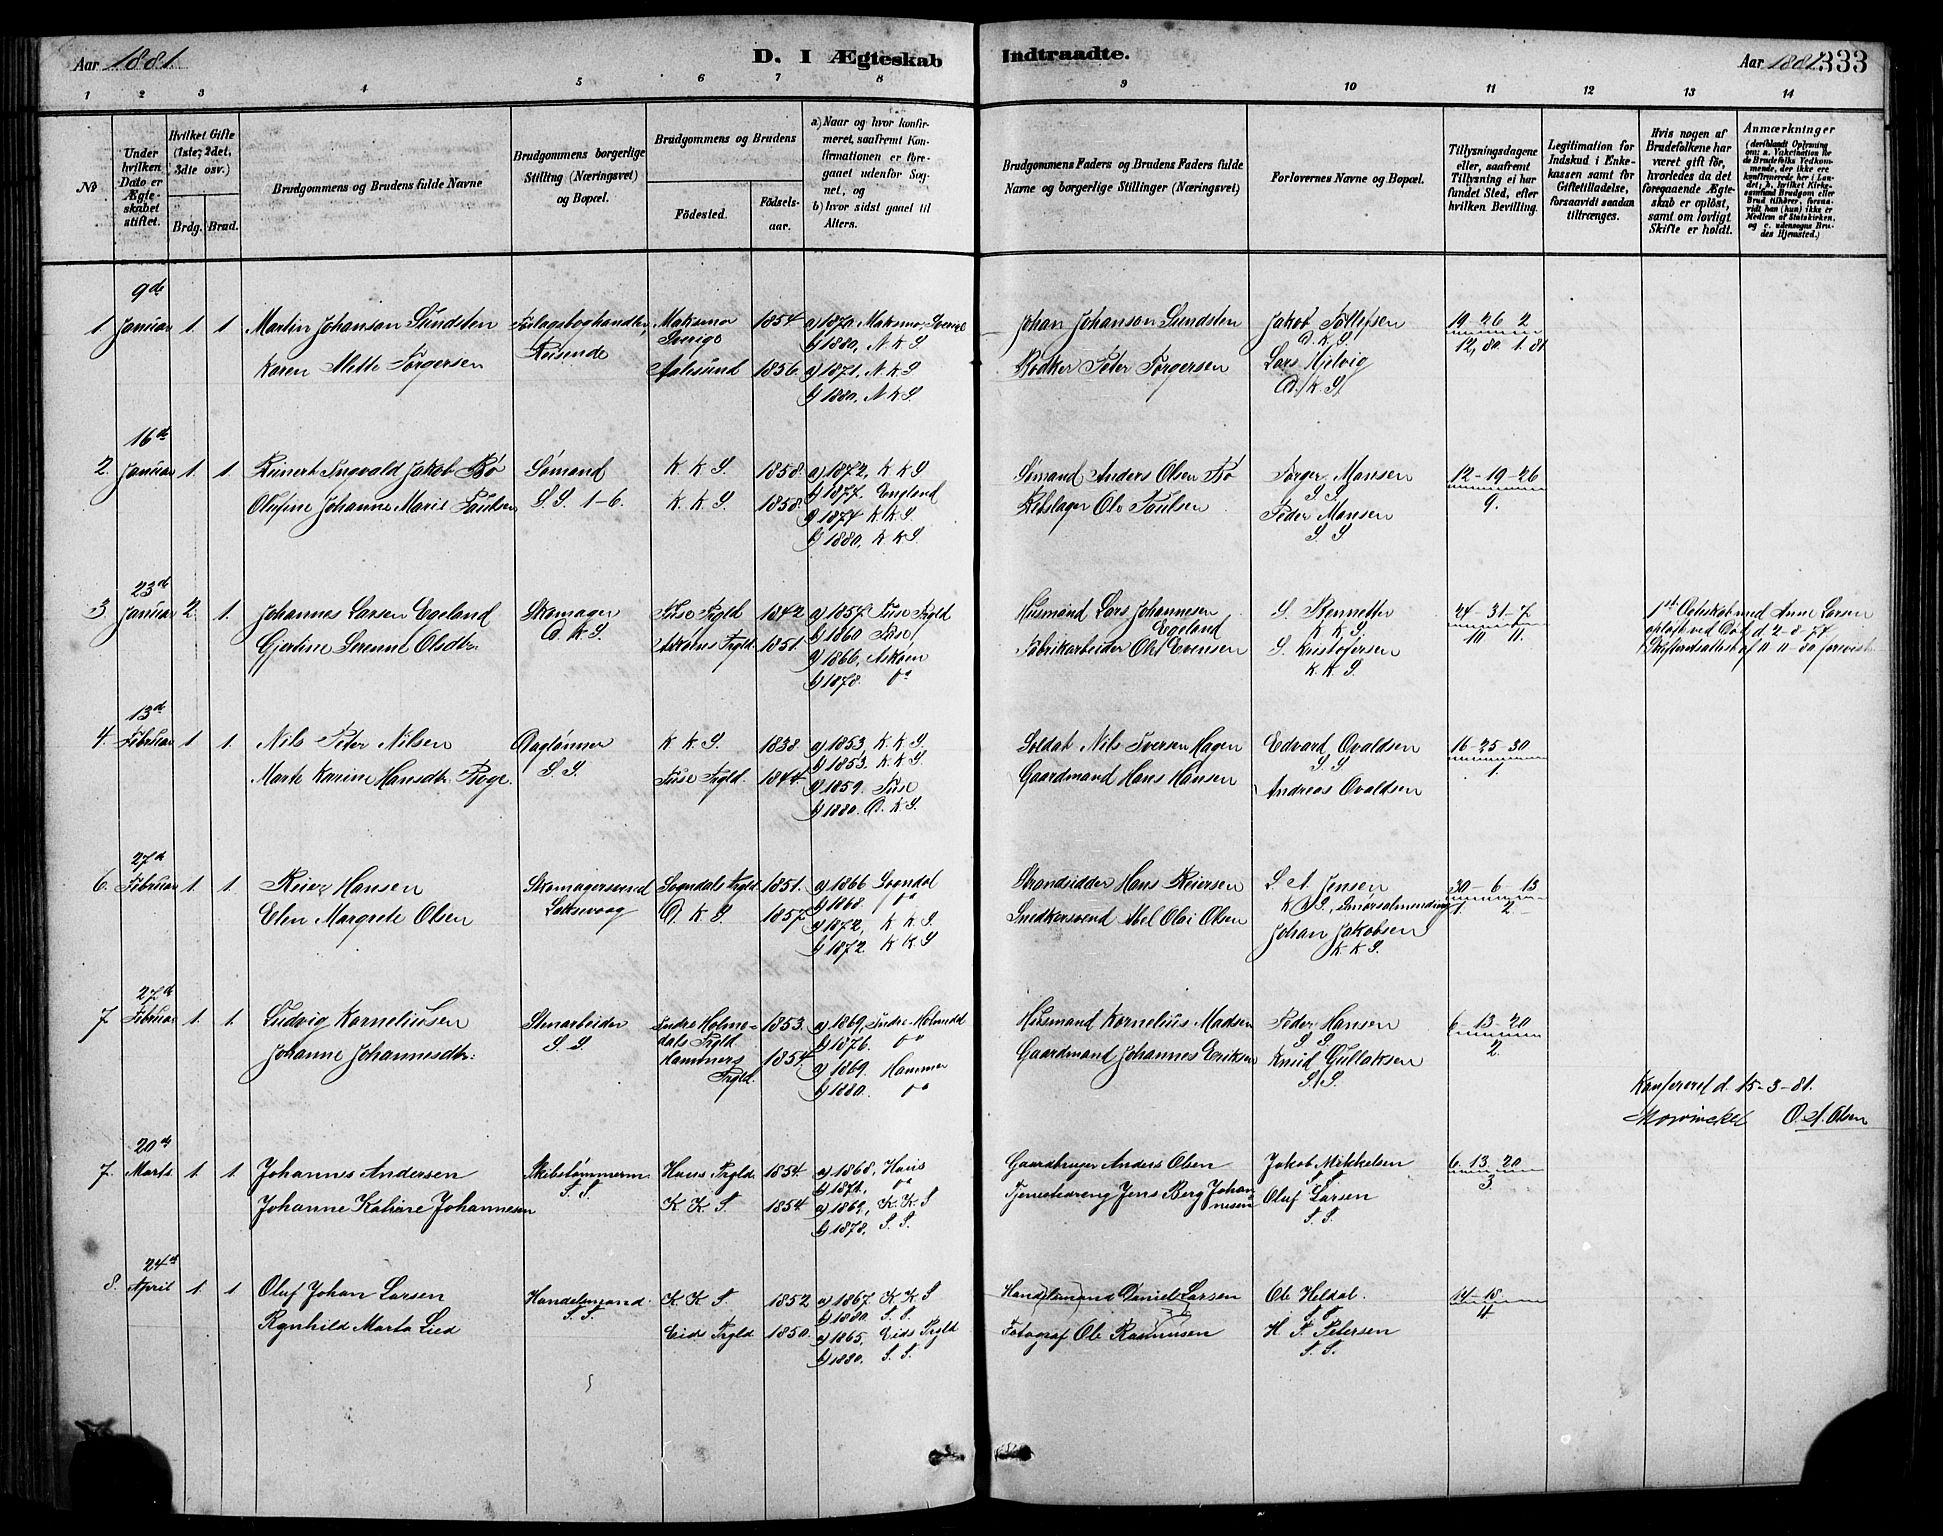 Aar 1881.
D. I Ægteskab Indtraadte.
Aar 1881. 333
1 2 3 4 5 6 7 8 9 10 11 12 13 14
No
Under hvilken Dato er Ægteskabet stiftet.
Hvilket Gifte (1ste, 2det, 3die osv.)
Brdg. Brud.
Brudgommens og Brudens fulde Navne
Brudgommens borgerlige Stilling (Næringsvei) og Bopæl.
Brudgommens og Brudens
Födested.
Födsels-aar.
a) Naar og hvor konfirmeret, saafremt Konfirmationen er foregaaet udenfor Sognet, og
b) hvor sidst gaaet til Alters.
Brudgommens Faders og Brudens Faders fulde Navne og borgerlige Stillinger (Næringsvei)
Forlovernes Navne og Bopæl.
Tillysningsdagene eller, saafremt Tillysning ei har fundet Sted, efter hvilken Bevilling.
Legitimation for Indskud i Enkekassen samt for Giftetilladelse, forsaavidt saadan tiltrænges.
Hvis nogen af Brudefolkene har været gift för, hvorledes da det foregaaende Ægteskab er oplöst, samt om lovligt Skifte er holdt.
Anmærkninger (deriblandt Oplysning om: a. Vakcination for de Brudefolks Vedkommende, der ikke ere konfirmerede her i Landet; b. hvilket Kirkesamfund Brudgom eller Brud tilhører, forsaavidt han (hun) ikke er Medlem af Statskirken, og c. udensogns Brudes Hjemsted.)
9de
1 Januar 1. 1 Martin Johanson Sundsten Maksmo Sverige 1854 a) 1870. Maksmo, Sverige
b) 1880, N K S
Reisende
Karen Mette Torgersen Aalesund 1856. a) 1871, N K S
b) 1880, N K S
Johan Johanson Sundsten Jakob Tollefsen D. K. S. 19 - 26 2
12, 80. 1. 81
Bødker Peter Torgersen Lars Hjelvig D. K. S.
16de
2. Januar 1. 1 Reinert Ingvald Jakob Bø Sømand K K S. 1858. a) 1872, K K S
b) 1877. England
Olufine Johanne Marie Paulsen S. S. 1-6. K. K S. 1858. a) 1874 K. K S.
b) 1880, K K S
Sømand Anders Olsen Bø Torger Monsen S S 12 - 19 - 26
9.
Rebslager Ole Paulsen Peder Monsen S S
23de
3 Januar 2. 1. Johannes Larsen Egeland Skomager D. K S. Fuse Prgld 1842 a) 1857. Fuse Prgld
b) 1860 Fuse
Gjertine Serenne Olsdtr. Askøens Prgld. 1851. a) 1866, Askøen
b) 1878. do
Husmand Lars Johannesen Egeland S. Bennetter K K S. 24 - 31 - 7
10 11.
Fabrikarbeider Ole Evensen S. Kristofersen K. K S.
1st Ægteskab med Anne Larsen
opløst ved Død d. 2-8-77.
Skifteretsattest af 11-11-80 forevist
13de
4. Februar 1 1. Nils Peter Nilsen Daglønner S. S. K K S. 1838 a) 1853, K K S.
b) 1853. K K S.
Marte Karine Hansdtr. Boge. Fuse Prgld. 1844. a) 1859. Fuse
b) 1880. D. K S.
Soldat Nils Iversen Hagen Edvard Ovaldsen S S 16 - 25 - 30
1.
Gaardmand Hans Hansen Andreas Ovaldsen
27de
6. Februar 1. 1. Reier Hansen Skomagersvend Laksevaag Sogndals Prgld 1851. a) 1866 Sogndal
b) 1868. do
Elen Margrete Olsen D. K S. 1857. a) 1872, K K S.
b) 1872. K K S
Strandsidder Hans Reiersen L A Jensen K K S, Smørsalmending 30 - 6 - 13
1. 2.
Snedkersvend Abel Olai Olsen Johan Jakobsen K K S.
27de
7. Februar 1. 1. Ludvig Korneliusen Stenarbeider S. S. Indre Holmedals Prgld 1853. a) 1869, Indre Holmedal
b) 1876. do
Johanne Johannesdtr. Hammers Prgld. 1854. a) 1869. Hammer
b) 1880. do
Husmand Kornelius Madsen Peder Hansen S S 6 - 13 - 20
2.
Gaardmand Johannes Eriksen Knud Gullaksen S. S.
Konfereret d. 15-3-81.
Mowinckel O. A. Olsen
20de
7. Marts. 1. 1. Johannes Andersen Skibstømmerm. S. S. Haus Prgld. 1854. a) 1868, Haus
b) 1871. do
Johanne Katrine Johannesen K K S 1854. a) 1869, K K S
b) 1878, S. S.
Gaardbruger Anders Olsen Jakob Mikkelsen S S 6. 13. 20
3.
Tjenestedreng Jens Berg Johannesen Oluf Larsen S. S.
24de
8. April 1. 1 Oluf Johan Larsen Handelsmand. S. S. K K S 1852 a) 1867. K K S
b) 1880. S. S.
Ragnhild Marta Lied Eids Prgld 1850. a) 1865. Eids Prgld
b) 1880. S. S.
Handelsmand Daniel Larsen Ole Heldal. S S 14 - 18.
4
Fotograf Ole Rasmusen H. P. Petersen S. S.